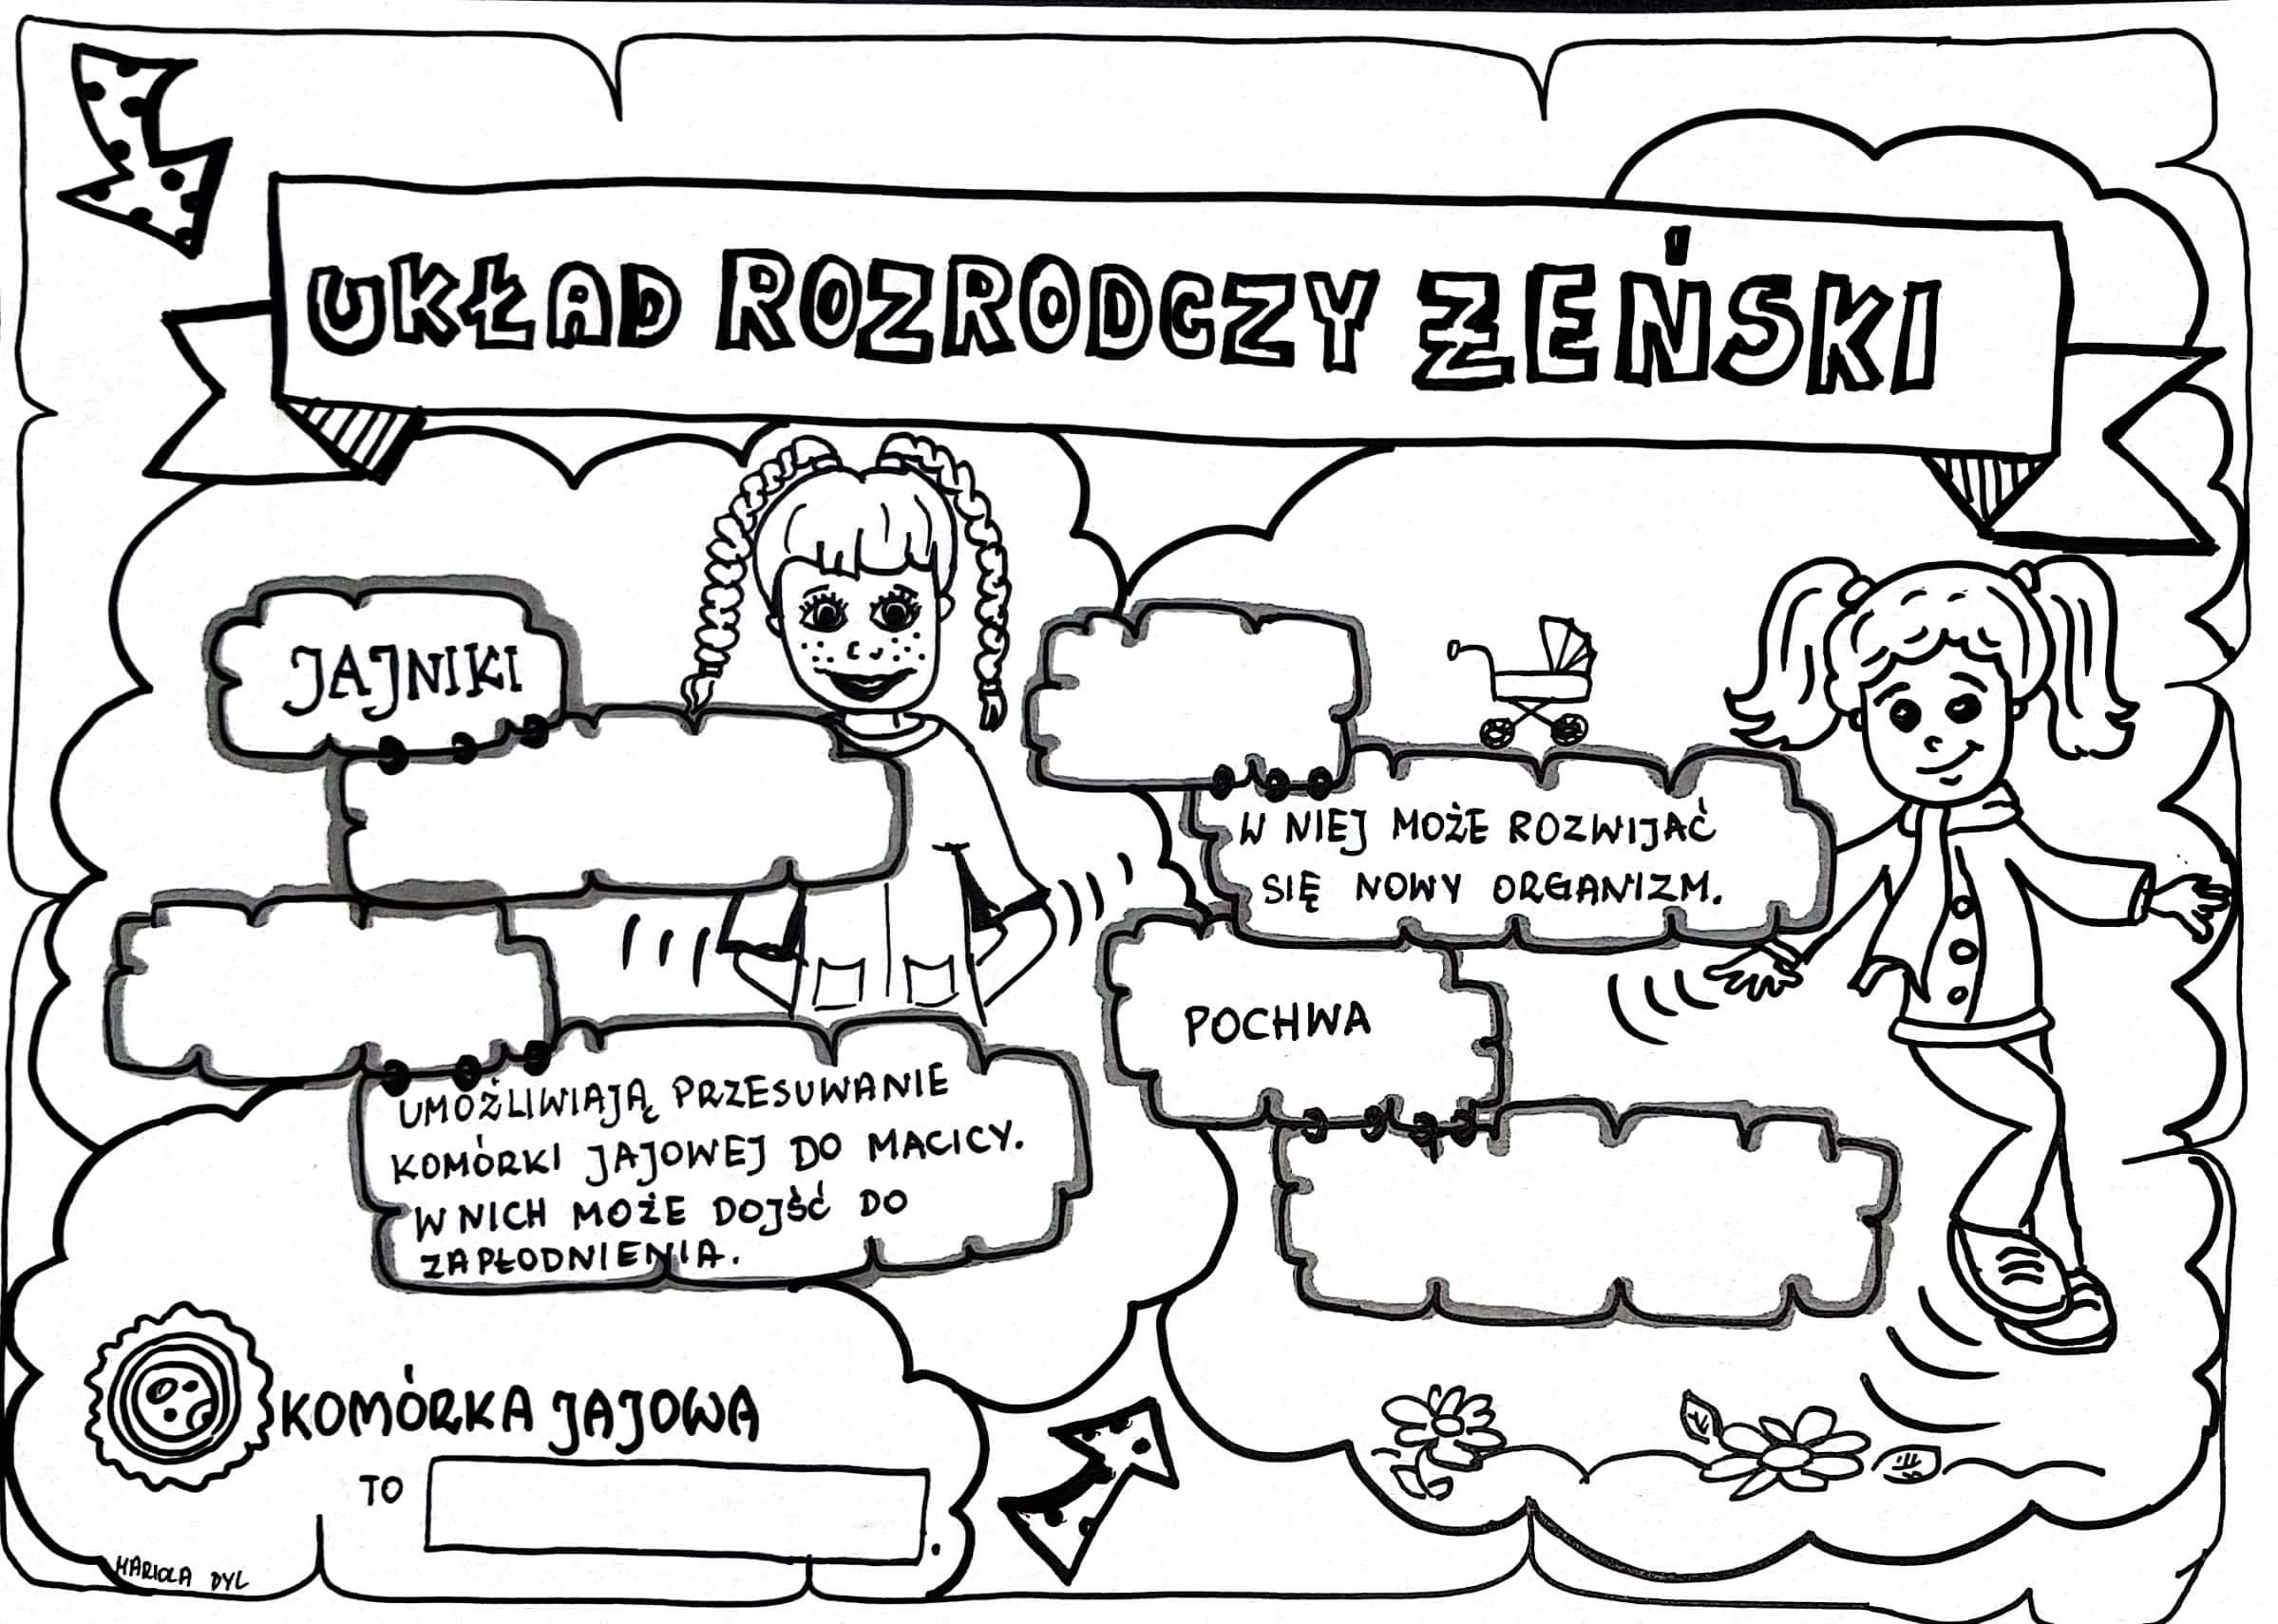 UKŁAD ROZRODCZY ŻEŃSKI
JAJNIKI
UMOŻLIWIAJĄ PRZESUWANIE
KOMÓRKI JAJOWEJ DO MACICY.
W NICH MOŻE DOJŚĆ DO
ZAPŁODNIENIA.
KOMÓRKA JAJOWA
TO
.
MARIOLA DYL
W NIEJ MOŻE ROZWIJAĆ
SIĘ NOWY ORGANIZM.
POCHWA